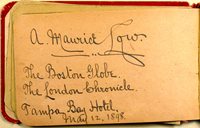 A. Maurice Low.
The Boston Globe.
The London Chronicle.
Tampa Bay Hotel,
May 12, 1898.